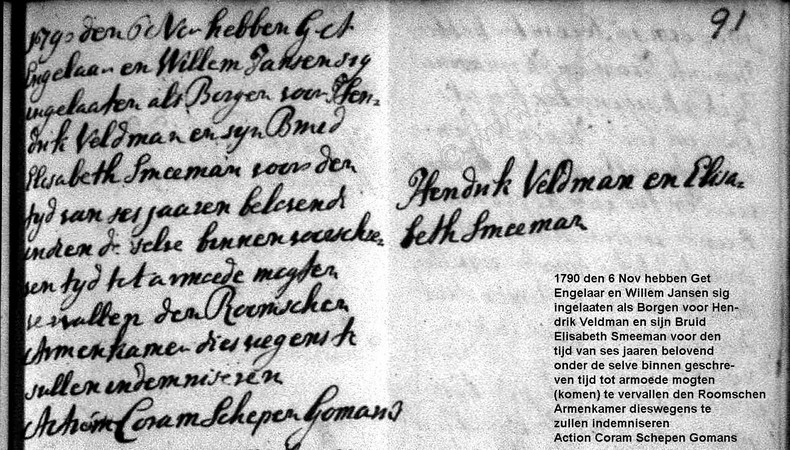 91
1790 den 6 Nov hebben Get
Engelaar en Willem Jansen sig
ingelaaten als Borgen voor Hen-
drik Veldman en syn Bruid
Elisabeth Smeeman voor den
tyd van ses jaaren belovend
indien de selve binnen voorschre-
ven tyd tot armoede mogten
vervallen den Roomschen
Armenkamer dies wegens te
sullen indemniseren
Actum Coram Schepen Gomans
Hendrik Veldman en Elisa-
beth Smeeman
1790 den 6 Nov hebben Get
Engelaar en Willem Jansen sig
ingelaaten als Borgen voor Hen-
drik Veldman en sijn Bruid
Elisabeth Smeeman voor den
tijd van ses jaaren belovend
onder de selve binnen geschre-
ven tijd tot armoede mogten
(komen) te vervallen den Roomschen
Armenkamer dieswegens te
zullen indemniseren
Action Coram Schepen Gomans